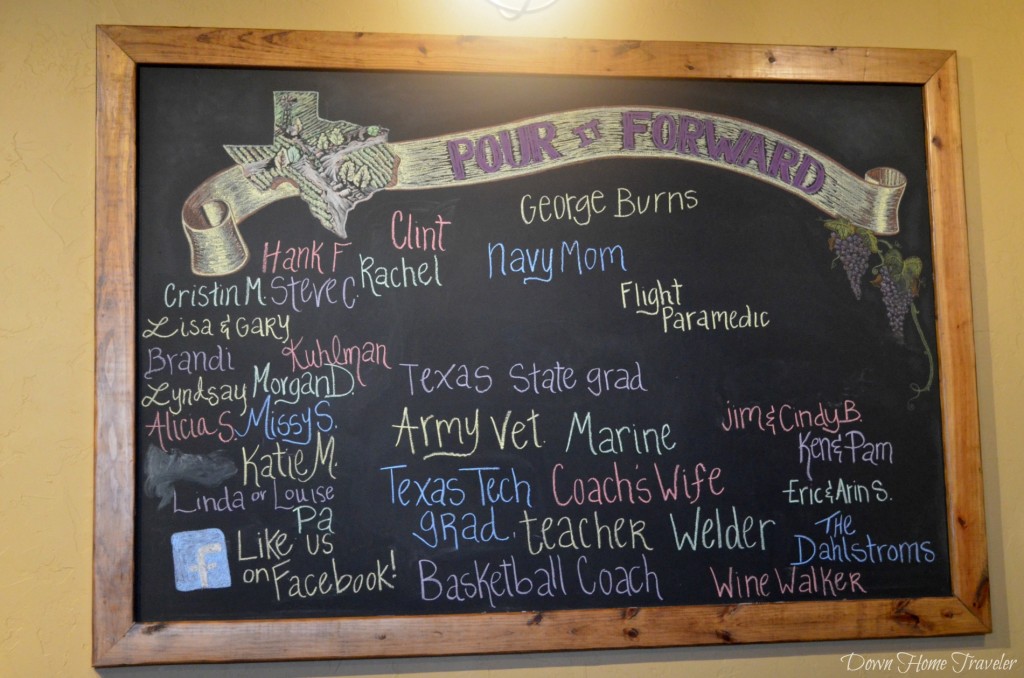 POUR IT FORWARD
George Burns
Clint
Hank F
Navy Mom
Rachel
Cristin M. Steve C.
Flight
Paramedic
Lisa & Gary
Brandi
Kuhlman
Lyndsay
Morgan D.
Texas State grad
Alicia S.
Missy S.
Army Vet.
Marine
Jim & Cindy B.
Katie M.
Ken & Pam
Linda or Louise
Texas Tech
grad.
Coach's Wife
Eric & Arin S.
Pa
teacher
Welder
The
Dahlstroms
f
Like us
on Facebook!
Basketball Coach
Wine Walker
Down Home Traveler